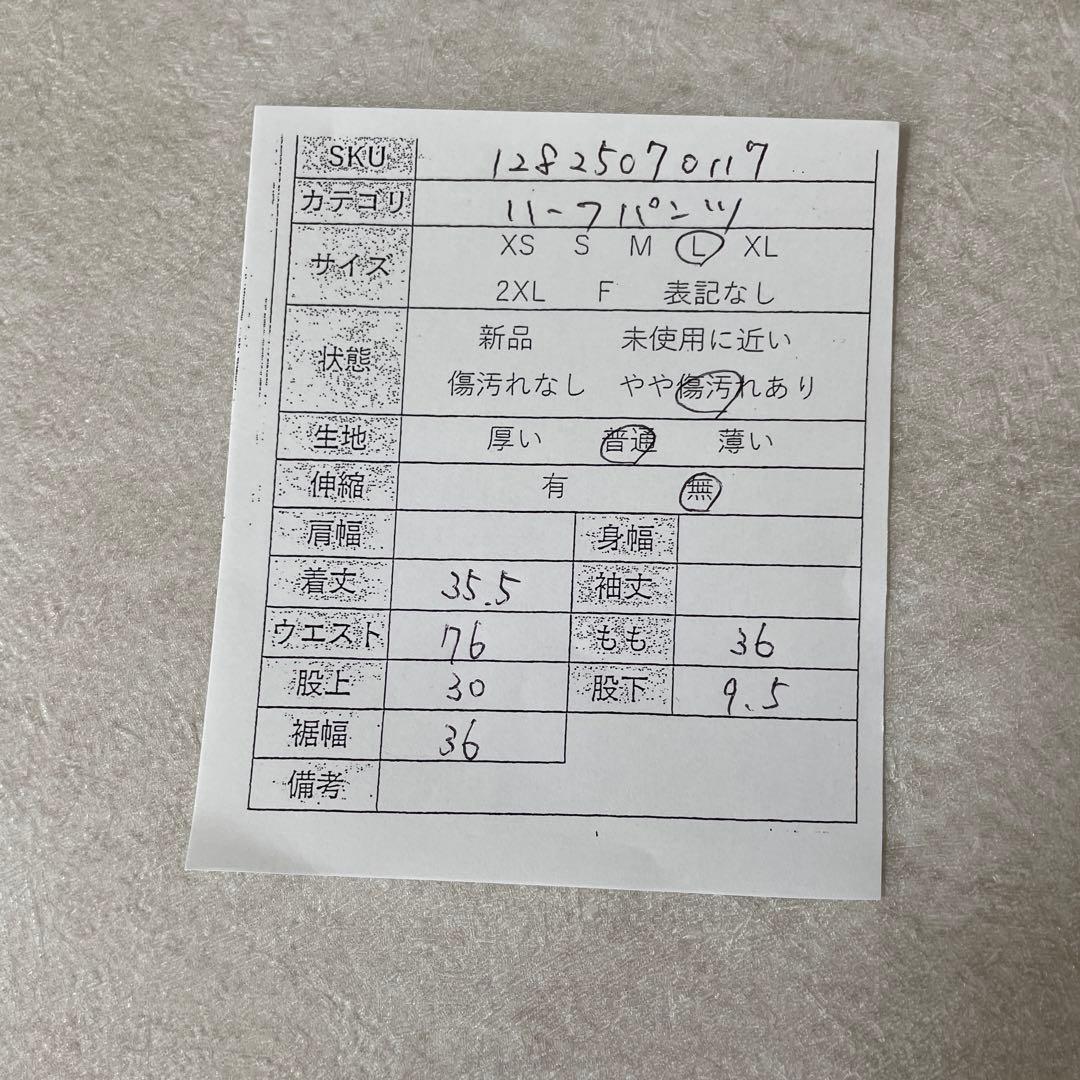 SKU 12825070117
カテゴリ ハーフパンツ
サイズ XS S M L XL
2XL F 表記なし
状態 新品 未使用に近い
傷汚れなし やや傷汚れあり
生地 厚い 普通 薄い
伸縮 有 無
肩幅 身幅
着丈 35.5 袖丈
ウエスト 76 もも 36
股上 30 股下 9.5
裾幅 36
備考